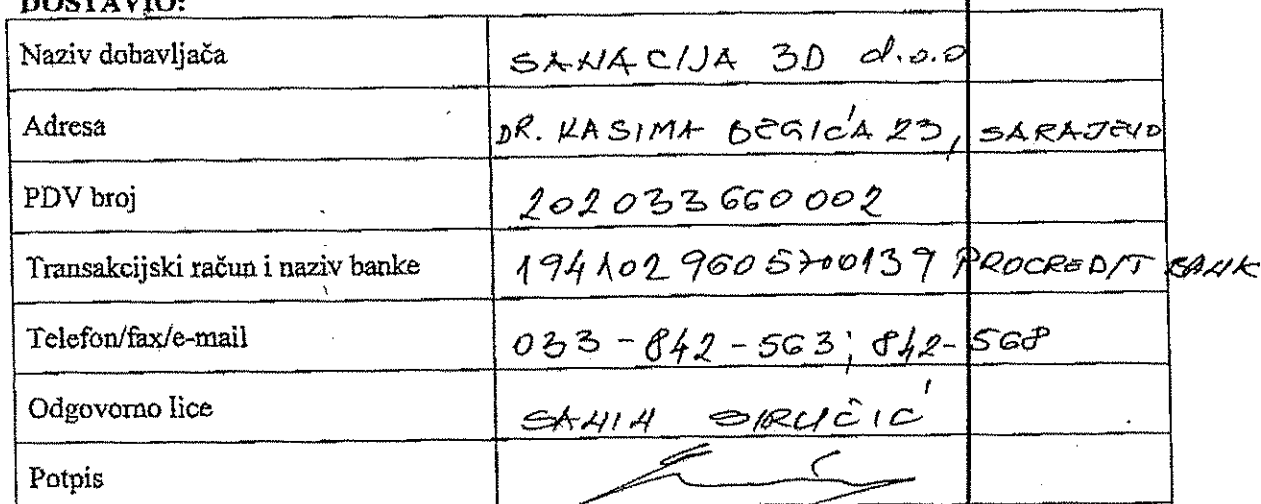 DOSTAVIO:
Naziv dobavljača SANACIJA 3D d.o.o
Adresa DR. KASIMA BEGIĆA 23, SARAJEVO
PDV broj 202033660002
Transakcijski račun i naziv banke 1941029605700139 PROCREDIT BANK
Telefon/fax/e-mail 033-842-563; 842-568
Odgovorno lice
Potpis